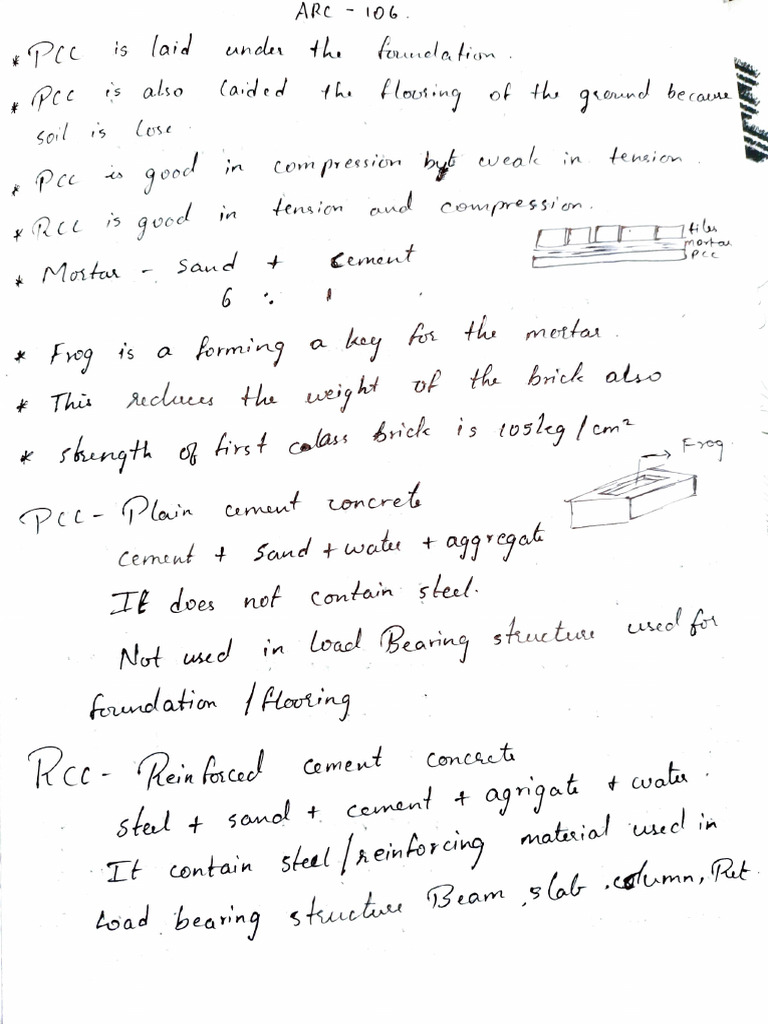 ARC - 106.
* PCC is laid under the foundation.
* PCC is also laided the flooring of the ground because
soil is lose.
* PCC is good in compression but weak in tension.
* RCC is good in tension and compression.
tiles
mortar
PCC
* Mortar - sand + cement
6 : 1
* Frog is a forming a key for the mortar.
* This reduces the weight of the brick also
* strength of first class brick is 105kg/cm²
Frog.
PCC - Plain cement concrete
cement + sand + water + aggregate
It does not contain steel.
Not used in Load Bearing structure used for
foundation / flooring
RCC - Reinforced cement concrete
steel + sand + cement + agrigate + water.
It contain steel/reinforcing material used in
Load bearing structure Beam, slab, column, Ret.